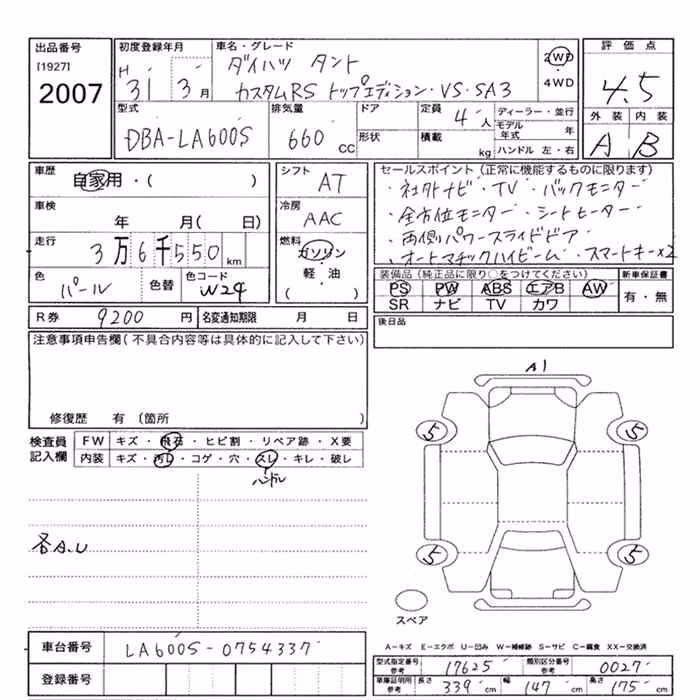 出品番号
[1927]
2007
初度登録年月
H 31 3月
車名・グレード
ダイハツ タント
カスタムRS トップエディション・VS・SA3
2WD
・
4WD
評価点
4.5
外装 内装
A B
型式
DBA-LA600S
排気量
660 CC
ドア
形状
定員
4人
積載
kg
ディーラー・並行
モデル年式 年
ハンドル 左・右
車歴
自家用・( )
車検
年 月( 日)
走行
3万6千550km
色
パール
色替
色コード
W24
シフト
AT
冷房
AAC
燃料
ガソリン
・
軽・油
( )
セールスポイント(正常に機能するものに限ります)
・社外ナビ・TV・バックモニター
・全方位モニター・シートヒーター
・両側パワースライドドア
・オートマチックハイビーム・スマートキー×2
装備品(純正品に限り○をつけてください)
PS PW ABS エアB AW
SR ナビ TV カワ
新車保証書
有・無
R券 9200円
名変通知期限 月 日
後日品
注意事項申告欄(不具合内容等は具体的に記入して下さい)
修復歴 有(箇所 )
検査員
記入欄
FW キズ・飛石・ヒビ割・リペア跡・X要
内装 キズ・汚れ・コゲ・穴・スレ・キレ・破レ
ハンドル
各A.U
A1
5 5
5 5
スペア
車台番号 LA600S-0754337
登録番号
A−キズ E−エクボ U−凹み W−補修跡 S−サビ C−腐食 XX−交換済
型式指定番号 参考 17625 類別区分番号 参考 0027
車庫証明用 参考 長さ 339cm 幅 147cm 高さ 175cm